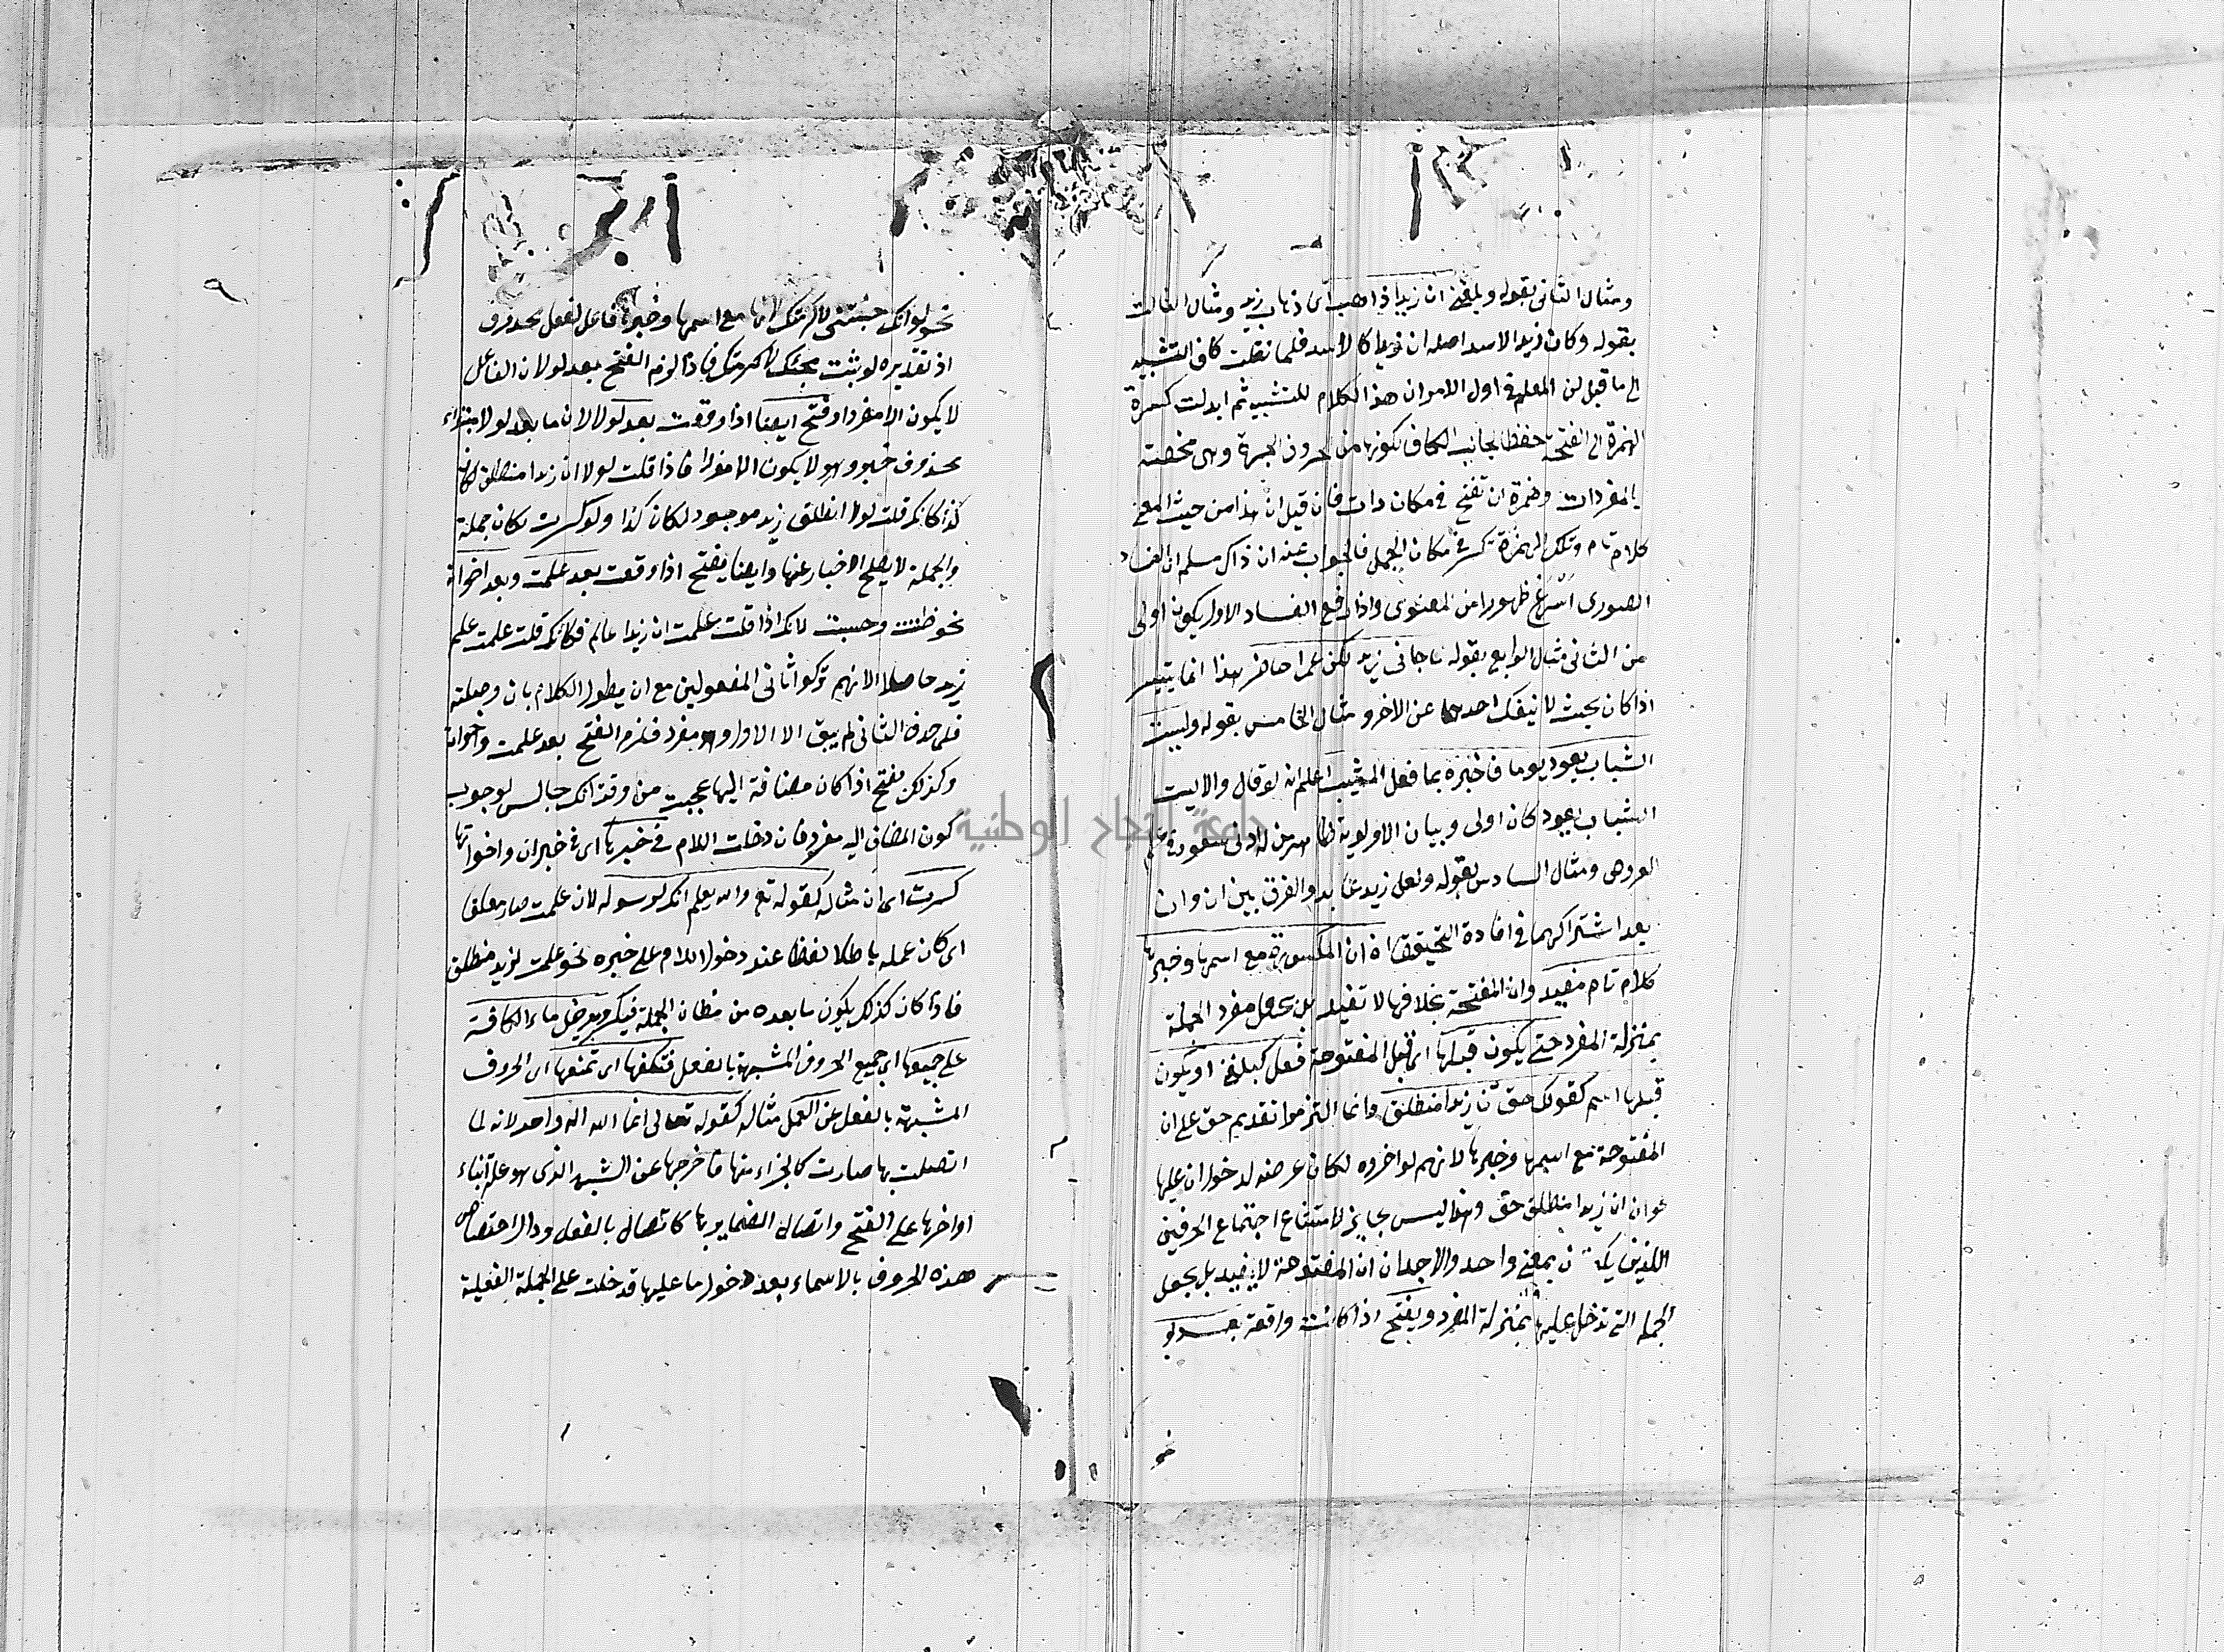 ومثال الثانى بقوله وبلغنى ان زيدا ذاهب اى ذهاب زيد ومثال الثالث
بقوله وكان زيد الاسد اصله ان زيدا كالاسد فلما نقلت كاف التشبيه
الى ما قبل ان المعلم فى اول الامر ان هذا الكلام للتشبيه ثم ابدلت كسرة
الهمزة الى الفتحة حفظا لجانب الكاف لكونها من الحروف الجارة وهى مختصة
بالمفردات وهمزة ان تفتح فى مكان دات فان قيل ان هذا من حيث المعنى
كلام تام وتلك الهمزة تكسر فى مكان الجمل فالجواب عنه ان ذاك مسلم ان الفساد
الصورى اسرع ظهورا من المعنوى واذا رفع الفساد الاول يكون اولى
من الثانى مثال الرابع بقوله ما جانى زيد لكن عمرا حاضر هذا انما يتيسر
اذا كان بحيث لا ينفك احدهما عن الاخر ومثال الخامس بقوله وليت
الشباب يعود يوما فاخبره بما فعل المشيب اعلم انه لو قال والا ليت
الشباب يعود كان اولى وبيان الاولوية ظاهر من له ادنى شعور فى علم
العروض ومثال السادس بقوله ولعل زيدا عابد والفرق بين ان وان
بعد اشتراكهما فى افادة التحقيق ان المكسورة مع اسمها وخبرها
كلام تام مفيد وان المفتحة بخلافها لا تفيد بل يجعل مفرد الجملة
بمنزلة المفرد حتى يكون قبلها اى قبل المفتوحة فعل كبلغنى او يكون
قبلها اسم كقولك حق ان زيدا منطلق وانما التزموا تقديم حق على ان
المفتوحة مع اسمها وخبرها لانهم لو اخروه لكان عرضة لدخول ان عليها
نحو ان ان زيدا منطلق حق وهذا ليس بجايز لامتناع اجتماع الحرفين
اللذين يكونان بمعنى واحد ولاجل ان ان المفتوحة لا يفيد بل يجعل
الجملة التى تدخل عليها بمنزلة المفرد ويفتح اذا كانت واقعة بعد لو
نحو لو انك جئتنى لاكرمتك انها مع اسمها وخبرها فاعل لفعل محذوف
اذ تقديره لو ثبت مجيئك لاكرمتك فاذا لزم الفتح بعد لو لان الفاعل
لا يكون الا مفردا وفتح ايضا اذا وقعت بعد لولا لان ما بعد لولا مبتداء
محذوف خبره وهو لا يكون الا مفردا فاذا قلت لولا ان زيدا منطلق لكان
كذا كانك قلت لولا انطلاق زيد موجود لكان كذا ولو كسرت لكان جملة
والجملة لا يصلح الاخبار عنها وايضا يفتح اذا وقعت بعد علمت وبعد اخواته
نحو ظننت وحسبت لانك اذا قلت علمت ان زيدا عالم فكانك قلت علمت علم
زيد حاصلا الا انهم تركوا ثانى المفعولين مع ان يطول الكلام بان وصلته
فلما حذف الثانى لم يبق الا الاول وهو مفرد فلزم الفتح بعد علمت واخواته
وكذلك يفتح اذا كان مضافة اليها عجبت من وقت انك جالس لوجوب
كون المضاف اليه مفرد فان دخلت اللام فى خبرها اى فى خبر ان واخواتها
كسرت اى ان مثاله كقوله تع والله يعلم انك لرسوله لان علمت صار معلقا
اى كان عمله باطلا لفظا عند دخول اللام على خبره نحو علمت لزيد منطلق
فاذا كان كذلك يكون ما بعده من مظان الجملة فيكسر ويدخل ما الكافة
على جميعها اى جميع الحروف المشبهة بالفعل فتكفها اى تمنعها اى الحروف
المشبهة بالفعل عن العمل مثاله كقوله تعالى انما الله اله واحد لانه لما
اتصلت بها صارت كالجزاء منها فاخرجها عن الشبه الذى هو علة بناء
اواخرها على الفتح واتصال الضماير بها كاتصال بالفعل ودال اختصاص
هذه الحروف بالاسماء بعد دخول ما عليها قد خلت على الجملة الفعلية
جامعة النجاح الوطنية